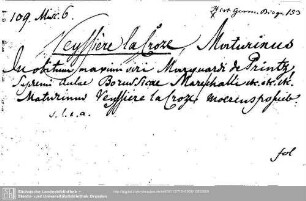 109. Misc. 6.
Hist. Germ. Biogr. 153
Veyssière la Croze, Maturinus
In obitum maximi viri Marquardi de Printz
Supremi Aulae Borussicae Mareschalli etc. etc. etc.
Maturinus Veyssiere la Croze moerens posuit
s. l. e. a.
fol
Sächsische Landesbibliothek -
Staats- und Universitätsbibliothek Dresden